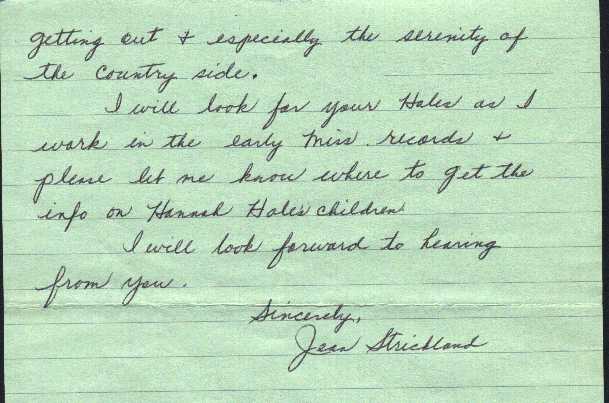 getting out & especially the serenity of
the country side.
I will look for your Hales as I
work in the early Miss. records &
please let me know where to get the
info on Hannah Hales children
I will look forward to hearing
from you.
Sincerely,
Jean Strickland